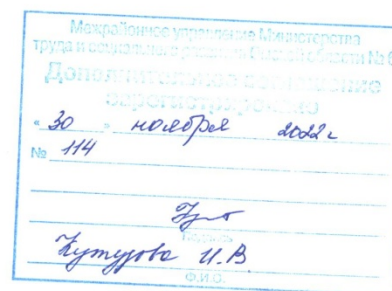 Межрайонное управление Министерства
труда и социального развития Омской области № 6
Дополнительное соглашение
зарегистрировано
« 30 » ноября 2022 г
№ 114
Подпись
Кутузова И.В
Ф.И.О.